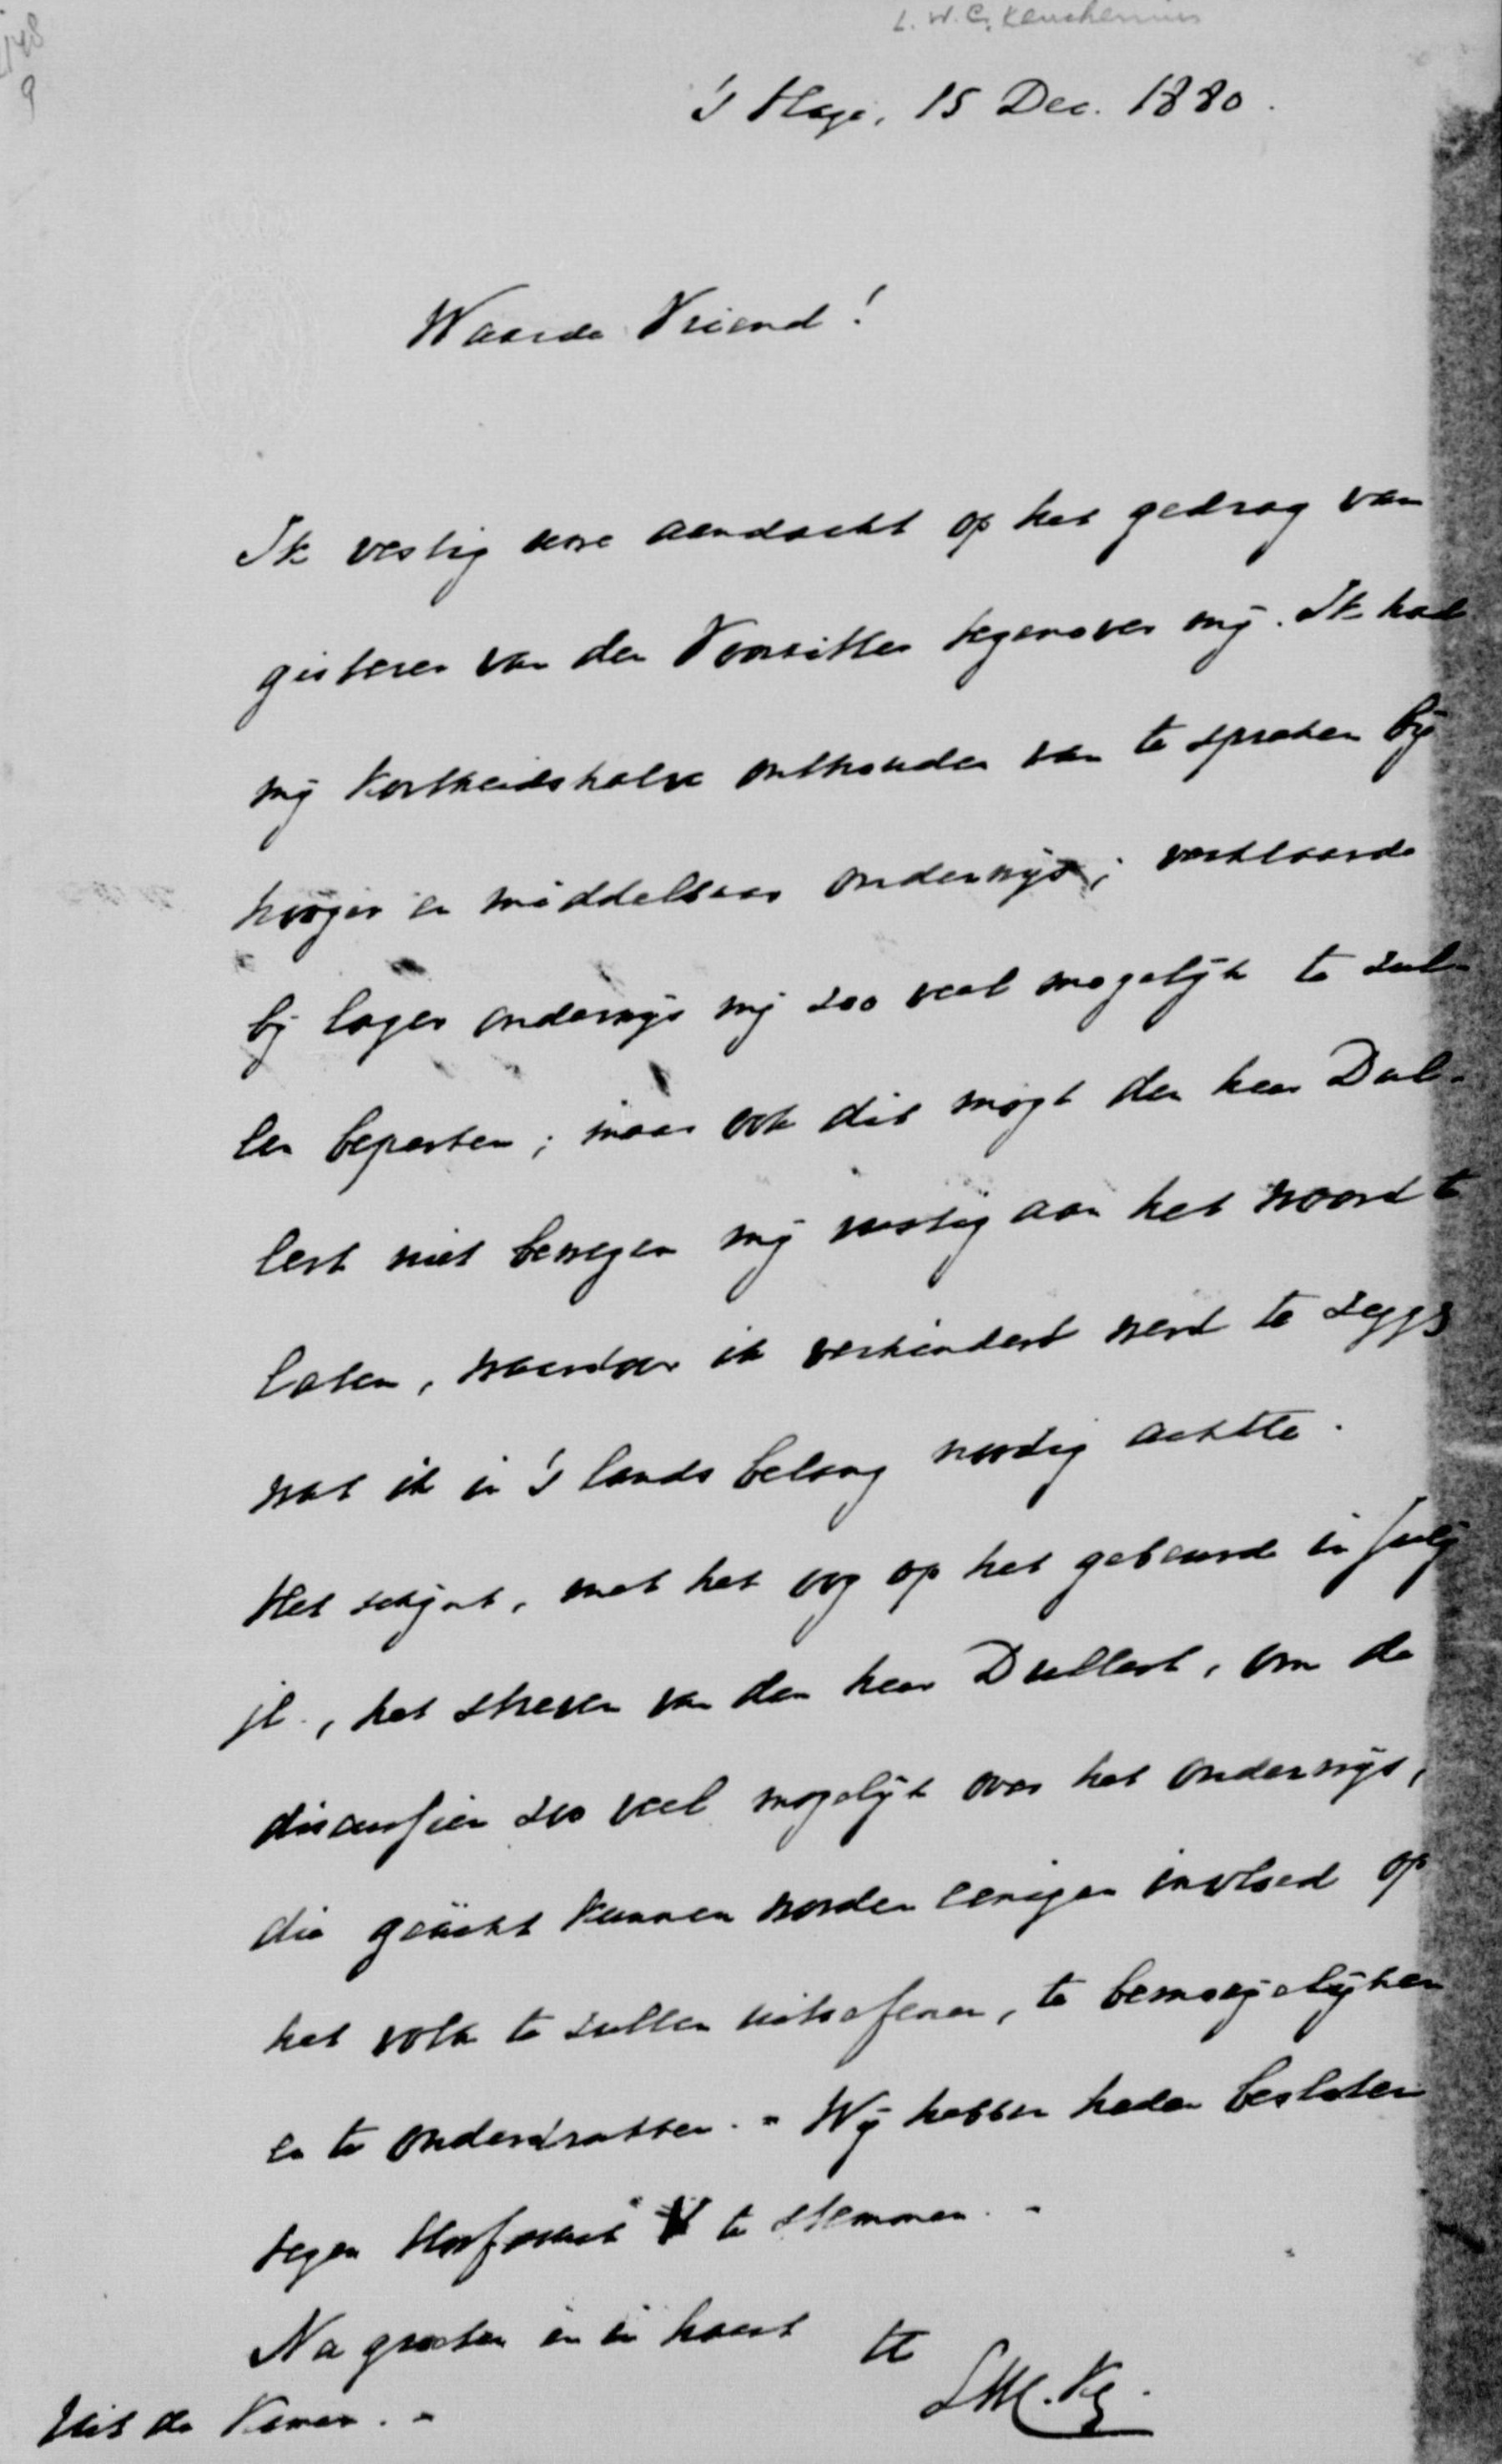 148
9
L.W.C. Keuchenius
's Hage, 15 Dec. 1880.
Waarde Vriend!
Ik vestig uwe aandacht op het gedrag van
gisteren van den Voorzitter tegenover mij. Ik had
mij kortheidshalve onthouden van te spreken bij
hooger en middelbaar onderwijs; verklaarde
bij lager onderwijs mij zoo veel mogelijk te zul-
len beperken; maar ook dit mogt den heer Dul-
lert niet bewegen mij rustig aan het woord te
laten, waardoor ik verhinderd werd te zeggen
wat ik in 's lands belang noodig achtte.
Het schijnt, met het oog op het gebeurde in Julij
jl., het streven van den heer Dullert, om de
discussien zoo veel mogelijk over het onderwijs,
die geächt kunnen worden eenigen invloed op
het volk te zullen uitoefenen, te bemoeijelijken
en te onderdrukken. - Wij hebben heden besloten
tegen Hoofdstuk V te stemmen. -
Na groeten en in haast tt
LWC.Ks.
Uit de Kamer. -